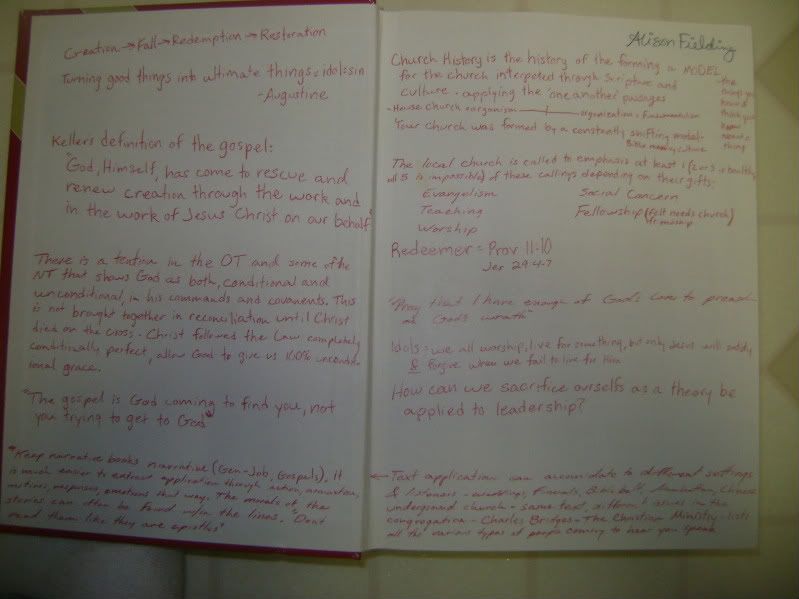 Creation → Fall → Redemption → Restoration
Turning good things into ultimate things = idol = sin
- Augustine
Kellers definition of the gospel:
"God, Himself, has come to rescue and
renew creation through the work and
in the work of Jesus Christ on our behalf"
There is a tention in the OT and some of the
NT that shows God as both, conditional and
unconditional, in his commands and covanents. This
is not brought together in reconciliation until Christ
died on the cross - Christ followed the Law completely
conditionally perfect, allow God to give us 100% uncondit-
ional grace.
"The gospel is God coming to find you, not
you trying to get to God"
"Keep narrative books narrative (Gen-Job, Gospels). It
is much easier to extract application through action,
motives, responses, emotions that way. The morals of the
stories can often be found w/in the lines. "Dont
read them like they are epistles"
Alison Fielding
Church History is the history of the forming a MODEL
for the church interpeted through Scripture and
culture - applying the 'one another' passages
- House church = organism organization = Fundamentalism
Your church was formed by a constantly shifting model-
culture
The local church is called to emphasis at least 1 (2 or 3 is healthy,
all 5 is impossible) of these callings depending on their gifts:
Evangelism Social Concern
Teaching Fellowship (felt needs church)
Worship
Redeemer = Prov 11:10
Jer 29:4-7
"Pray that I have enough of God's love to preach
on God's wrath"
Idols = we all worship, live for something, but only Jesus will satisfy
& forgive when we fail to live for Him
How can we sacrifice ourselfs as a theory be
applied to leadership?
← Text application can accomidate to different settings
& listeners - weddings, Funerals, Chinese
underground church - same text, different issues in the
congregation - Charles Bridges - The Christian Ministry - lists
all the various types of people coming to hear you speak